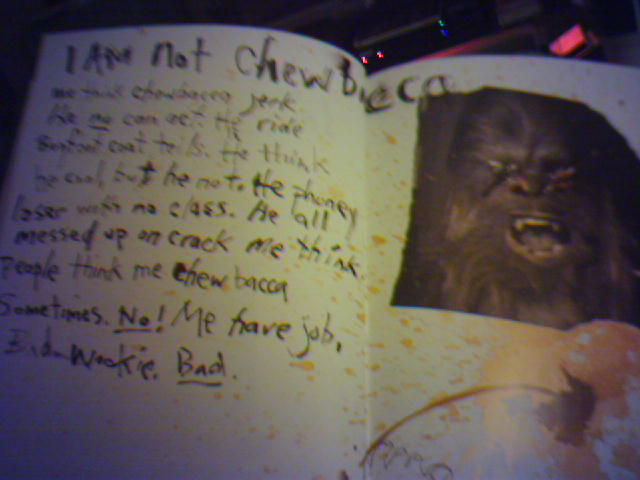 I AM not chewbacca
me think chewbacca jerk.
He no can act. He ride
Bigfoot coat tails. He think
he cool, but he not. He phoney
loser with no class. He all
messed up on crack me think.
People think me chewbacca
Sometimes. No! Me have job.
Bad Wookie. Bad.